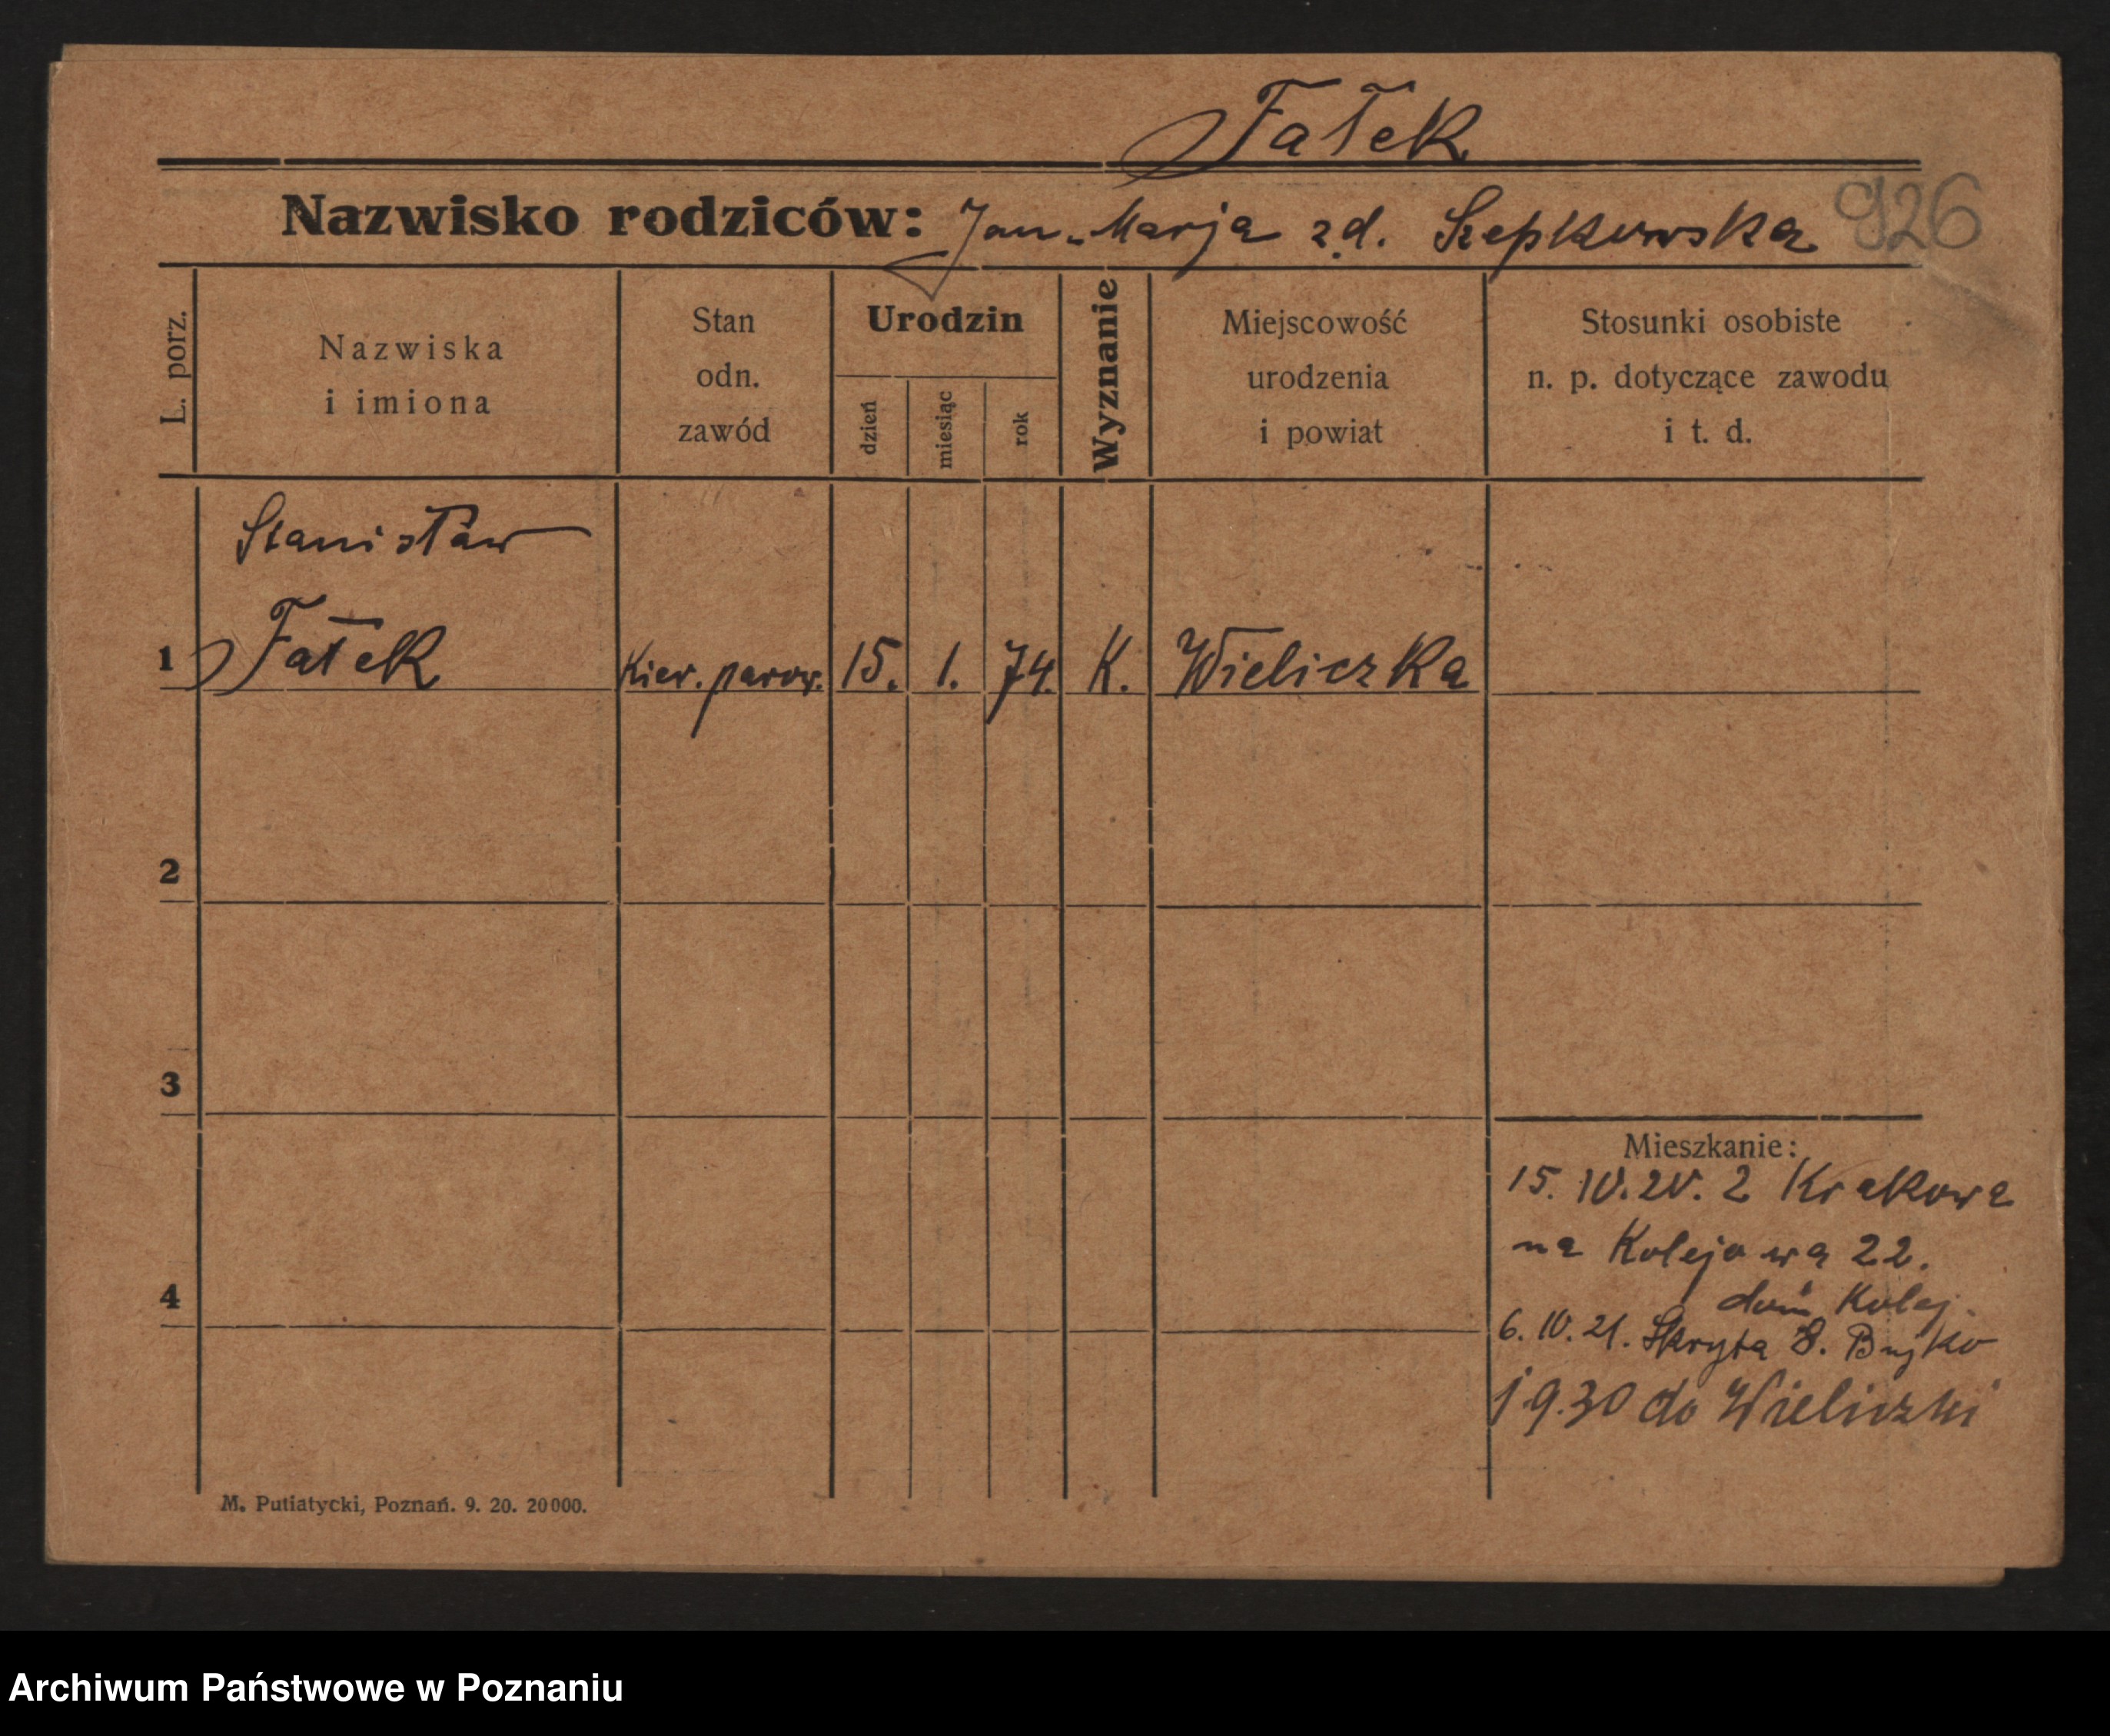 Fałek
Nazwisko rodziców: Jan - Marja zd. Szepkowska 926
L. porz.
Nazwiska
i imiona
Stan
odn.
zawód
Urodzin
dzień
miesiąc
rok
Wyznanie
Miejscowość
urodzenia
i powiat
Stosunki osobiste
n. p. dotyczące zawodu
i t. d.
Stanisław
1 Fałek Kier. parow. 15. 1. 74. K. Wieliczka
2
3
4
Mieszkanie:
15. IV. 20. z Krakowa
na Kolejową 22.
dom Kolej.
6. IV. 21. Skryta 8.
19.30 do Wieliczki
M. Putiatycki, Poznań. 9. 20. 20000.
Archiwum Państwowe w Poznaniu